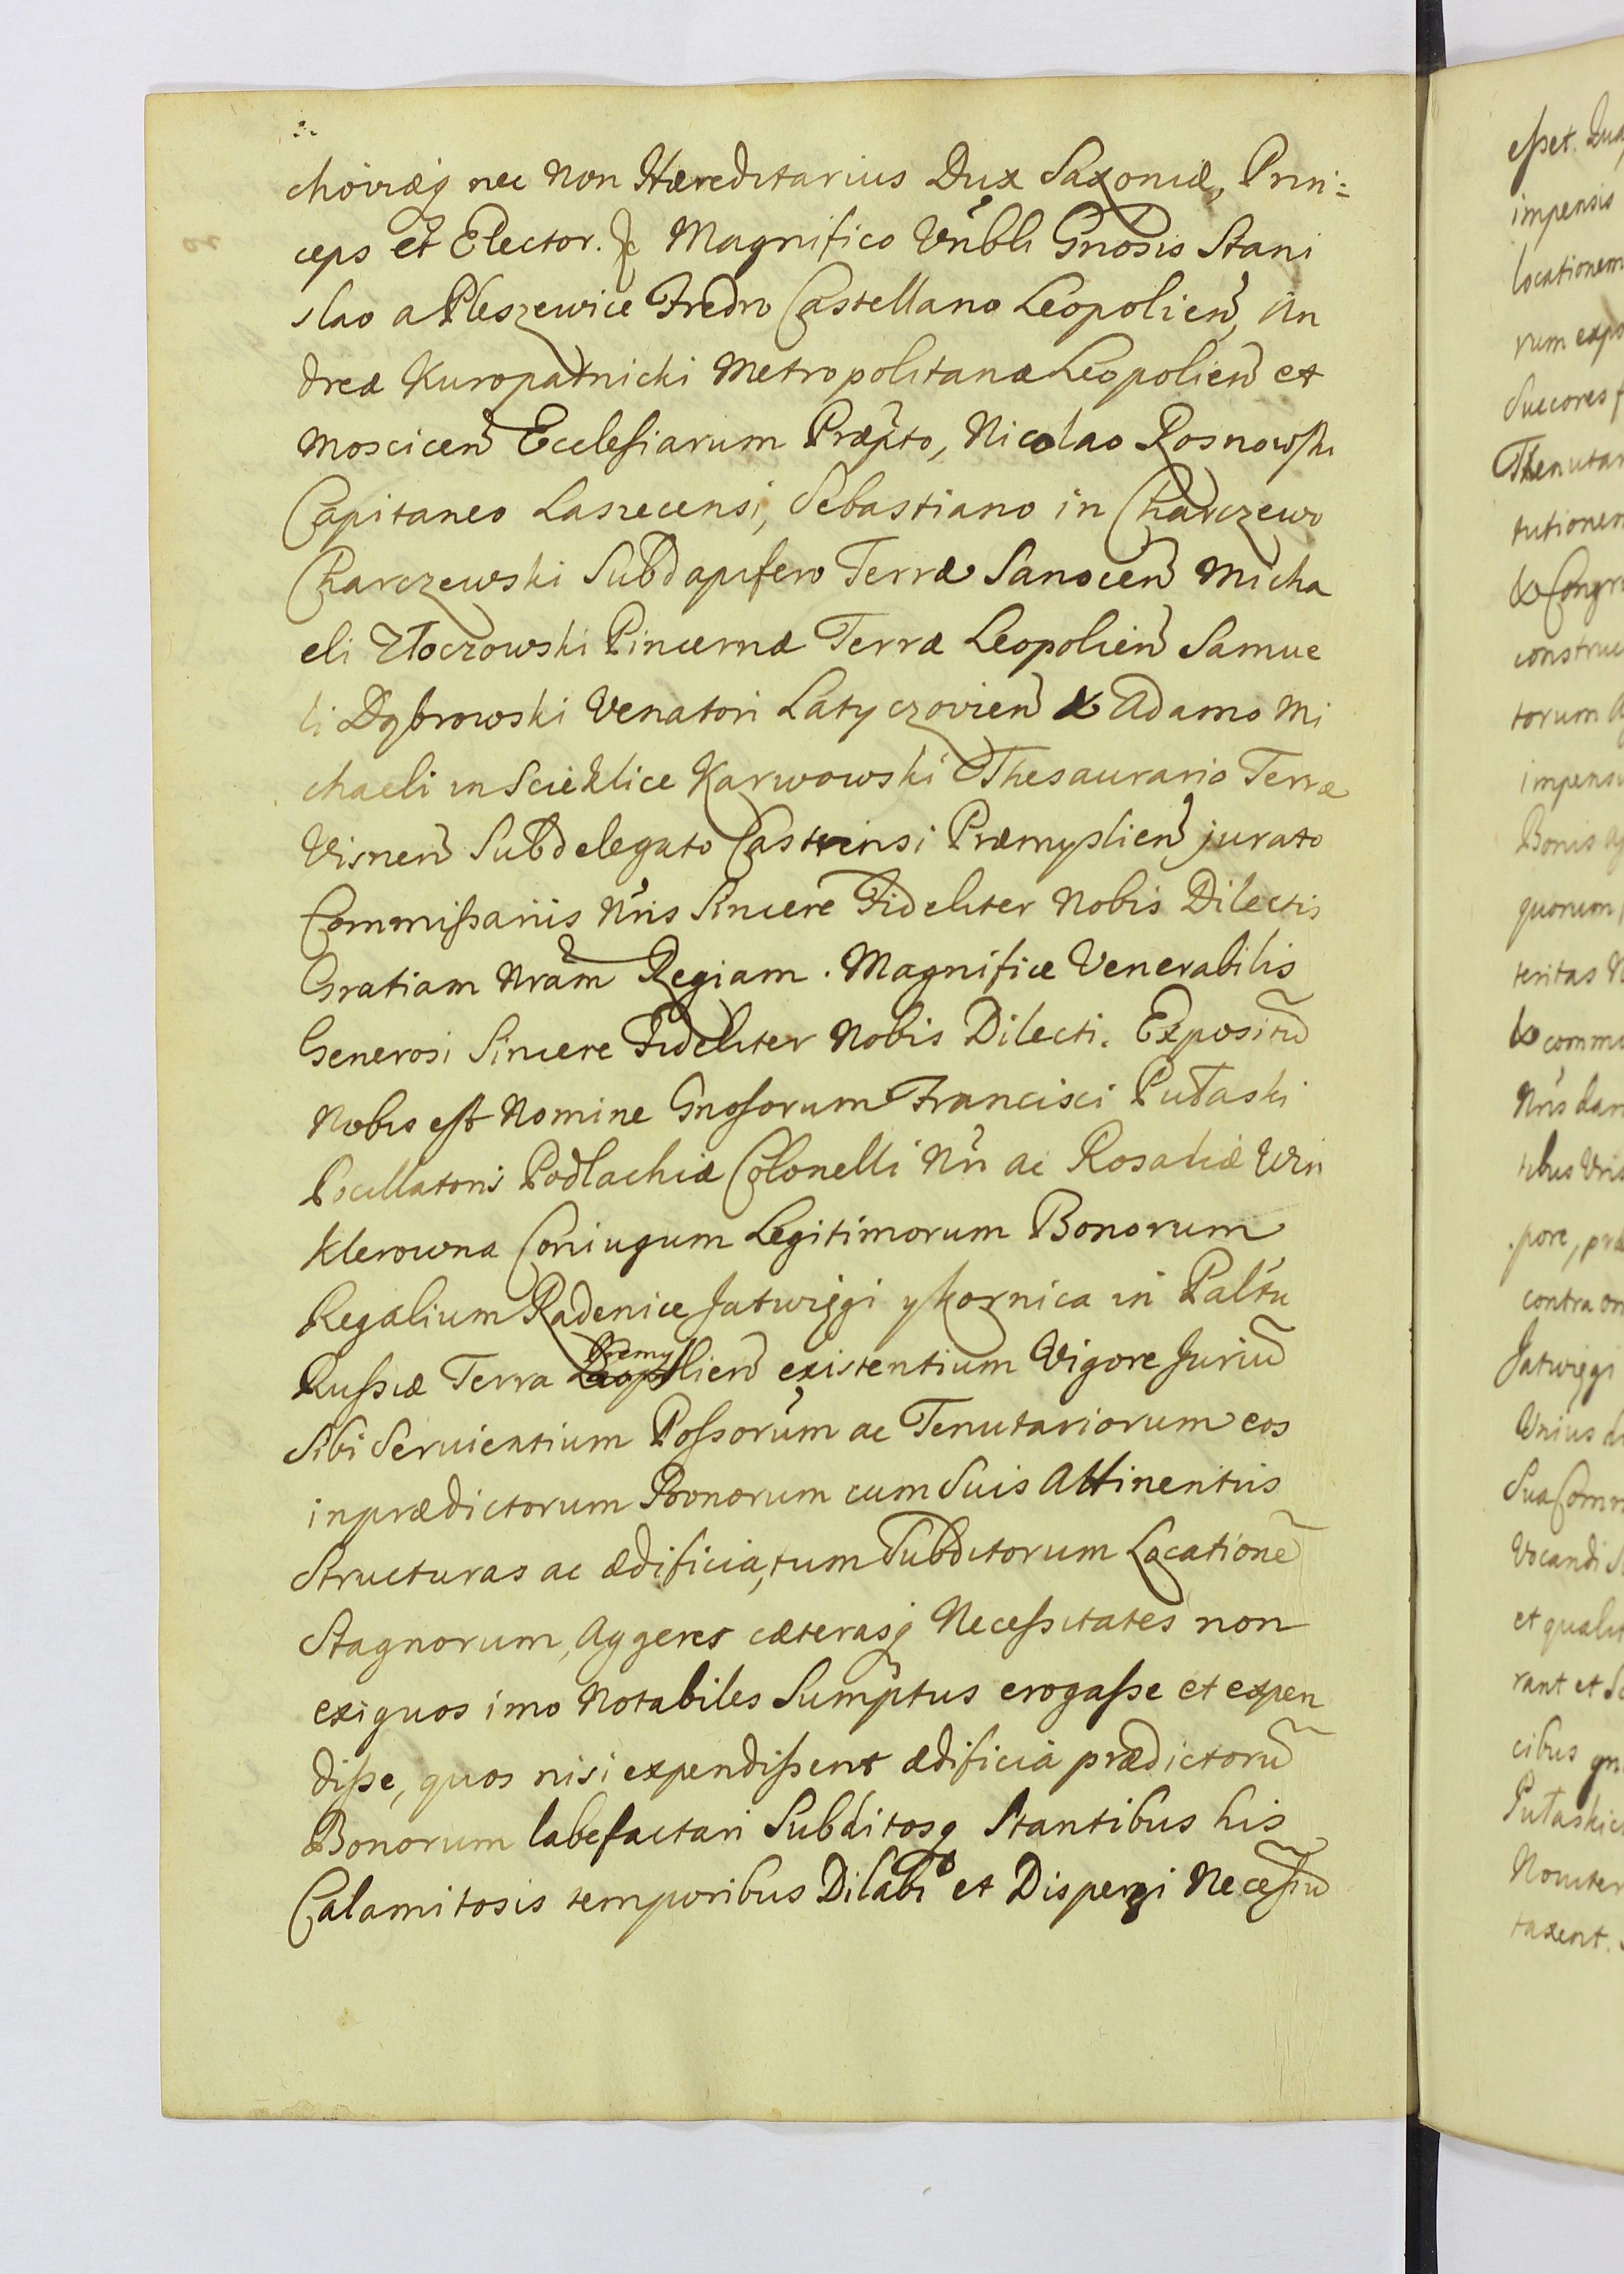 choviæq nec non Hæreditarius Dux Saxoniæ, Prin:
ceps et Elector. Magnifico Vnbli Gnosis Stani
slao a Pleszewice Fredro Castellano Leopolien, An
dreæ Kuropatnicki Metropolitanæ Leopolien et
Moscicen Ecclesiarum Præpto, Nicolao Rosnowski
Capitaneo Lasrecensi, Sebastiano in Charczewo
Charczewski Subdapifero Terræ Sanocen Micha
eli Złoczowski Pincernæ Terræ Leopolien Samue
li Dąbrowski Venatori Latyczovien & Adamo Mi
chaeli in Scieklice Karwowski Thesaurario Terræ
Visnen Subdelegato Castrensi Præmyslien jurato
Commissariis Nris Sincere Fideliter Nobis Dilectis
Gratiam Nram Regiam. Magnifice Venerabilis
Generosi Sincere Fideliter Nobis Dilecti. Expositũ
Nobis est Nomine Gnosorum Francisci Pułaski
Pocillatoris Podlachiæ Colonelli Nri ac Rosaliæ Win
klerowna Coniugum Legitimorum Bonorum
Regalium Radenice Jatwięgi y kornica in Paltu
Russiæ Terra Premyslien existentium Vigore Juriũ
Sibi Servientium Possorum ac Tenutariorum eos
in prædictorum Bonorum cum Suis Attinentiis
Structuras ac ædificia, tum Subditorum Locationẽ
Stagnorum, Aggeres cæterasq Necessitates non
exiguos imo Notabiles Sumptus erogasse et expen
disse, quos nisi expendissent ædificia prædictorũ
Bonorum labefactari Subditosq Stantibus his
Calamitosis temporibus Dilabi et Dispergi Necessũ
esset.
impensis
locationem
rum
Succores
Thenutar
tutionem
& Congr
construc
torum
impens
Bonis
quorum
teritas
& commu
Nris dar
tibus Vris
pore, præ
contra om
Jatwięgi
Unius
Sua Comm
Vocandi
et qualit
rant et
cibus
Pułaskic
Noviter
taxent.